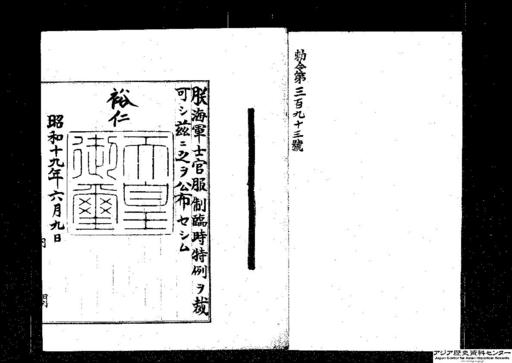 勅令第三百九十三號
朕海軍士官服制臨時特例ヲ裁
可シ茲ニ之ヲ公布セシム
裕仁
天皇
御璽
昭和十九年六月九日
アジア歴史資料センター
Japan Center for Asian Historical Records